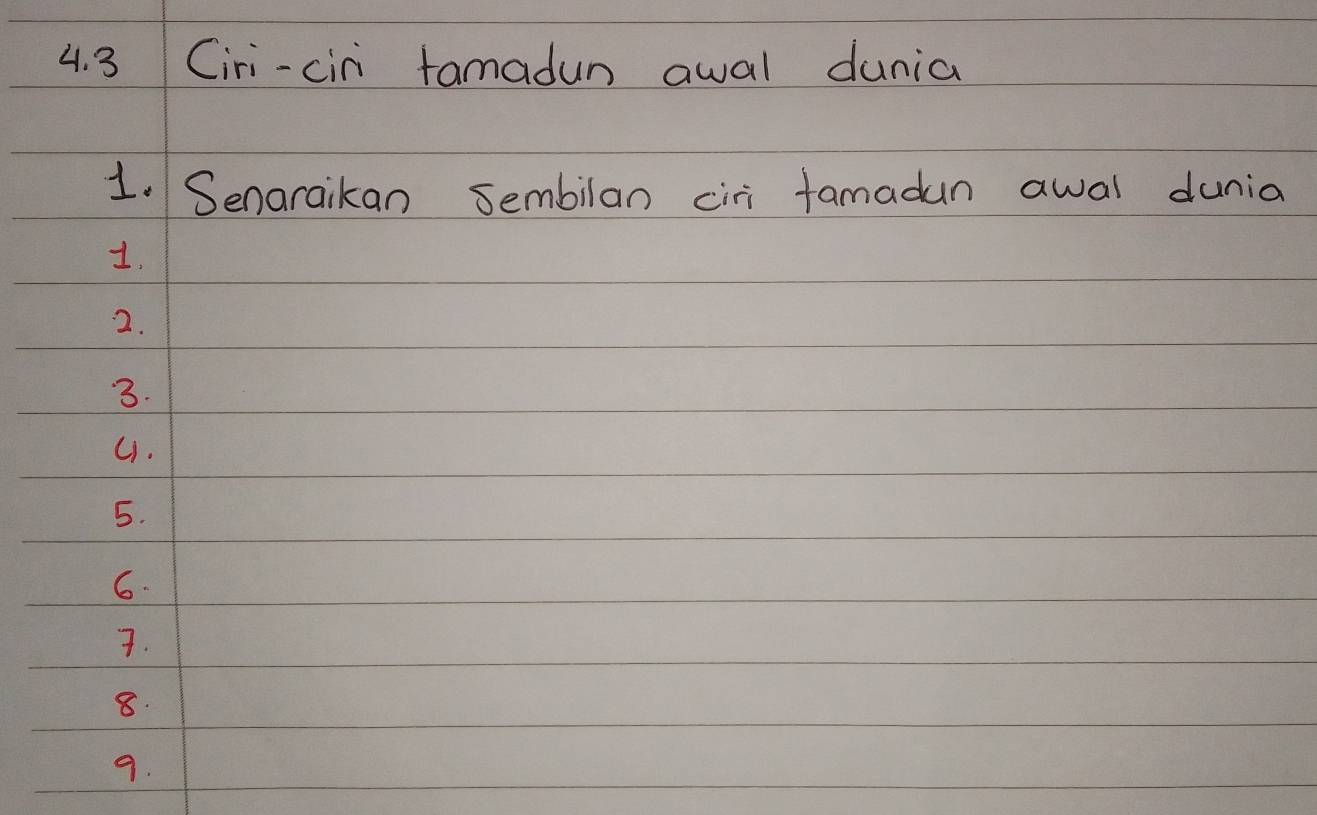 4.3 Ciri-ciri tamadun awal dunia
1. Senaraikan sembilan ciri tamadun awal dunia
1.
2.
3.
4.
5.
6.
7.
8.
9.